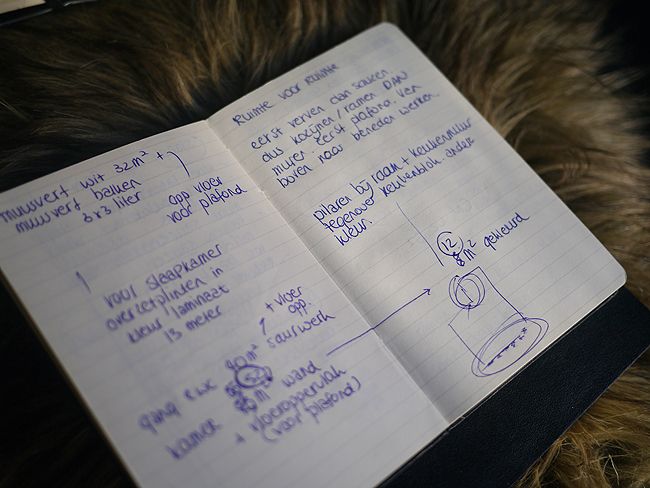 muurverf wit 32m² +
muurverf balken
3x3 liter
opp vloer
voor plafond
voor slaapkamer
overzetplinten in
kleur laminaat
13 meter
+ vloer
opp.
gang e wc 90m² sauswerk
kamer m² wand
+ vloeroppervlak
(voor plafond)
Ruimte voor Ruimte
eerst verven dan sausen
dus kozijnen/ramen DAN
muren eerst plafond. Van
boven naar beneden werken.
pilaren bij raam + keukenmuur
tegenover keukenblok. andere
kleur.
12
8 m² gekleurd